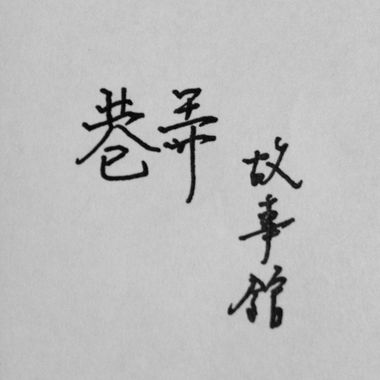 巷弄
故事館